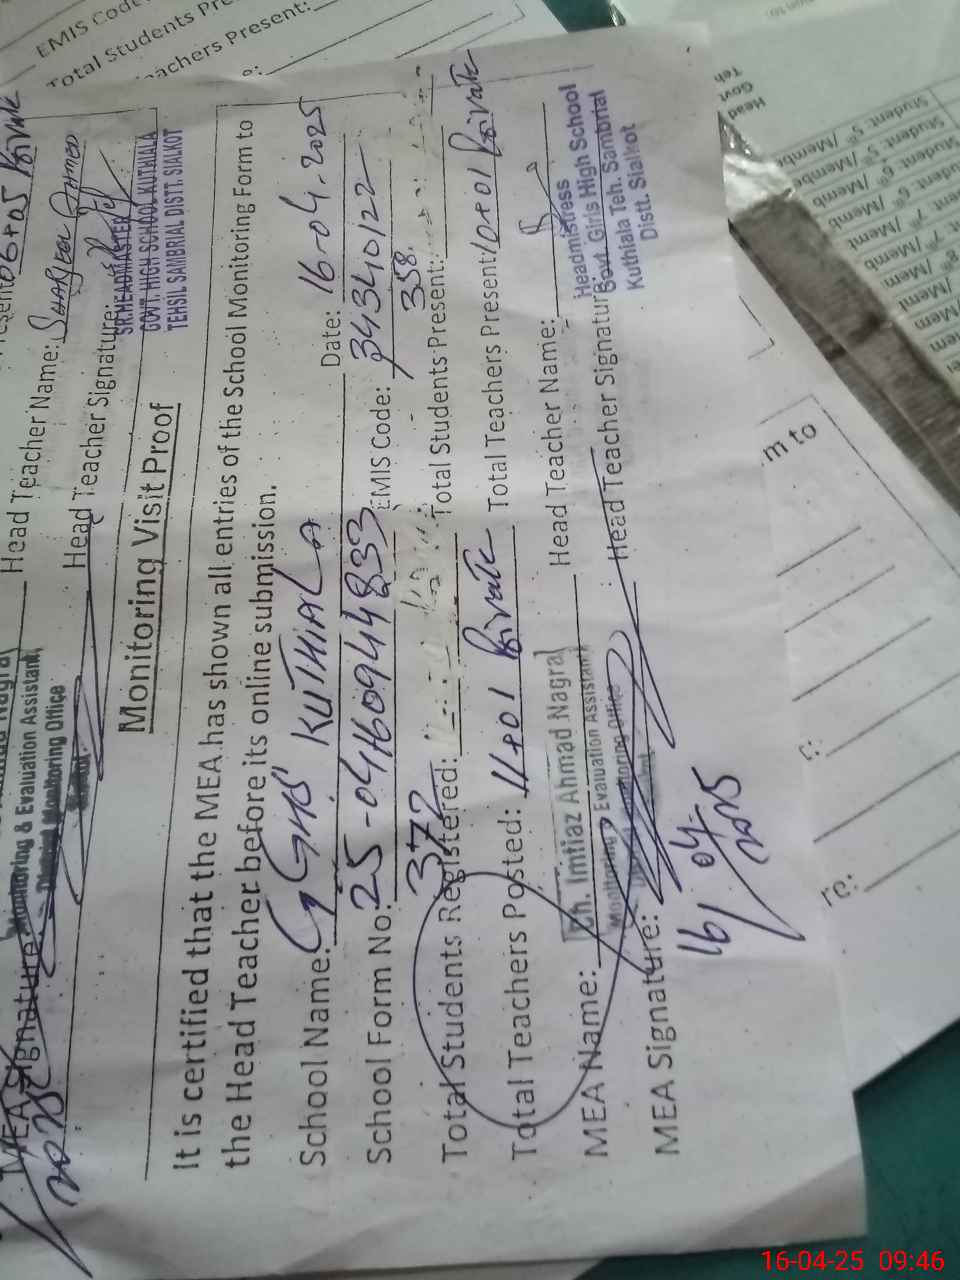 EMIS Code
Total Students Pre
achers Present:
06+05 Private
Head Teacher Name: Shakeel Ahmed
Head Teacher Signature:
SR. HEADMASTER
GOVT. HIGH SCHOOL KUTHIALA
TEHSIL SAMBRIAL DISTT. SIALKOT
Monitoring & Evaluation Assistant
District Monitoring Office
MEA Signature
2025
Monitoring Visit Proof
It is certified that the MEA has shown all entries of the School Monitoring Form to
the Head Teacher before its online submission.
School Name: GGHS KUTHIALA Date: 16-04-2025
School Form No: 25-041609444833 EMIS Code: 34340122
Total Students Registered: 372 Total Students Present: 358
Total Teachers Posted: 11+01 Private Total Teachers Present: 10+01 Private
MEA Name: Ch. Imtiaz Ahmad Nagra Head Teacher Name:
Monitoring & Evaluation Assistant
MEA Signature: Head Teacher Signature:
Headmistress
Govt. Girls High School
Kuthiala Teh. Sambrial
Distt. Sialkot
16/04/2025
m to
re:
Head
Govt
Teh
Student. 5th /Memb
16-04-25 09:46